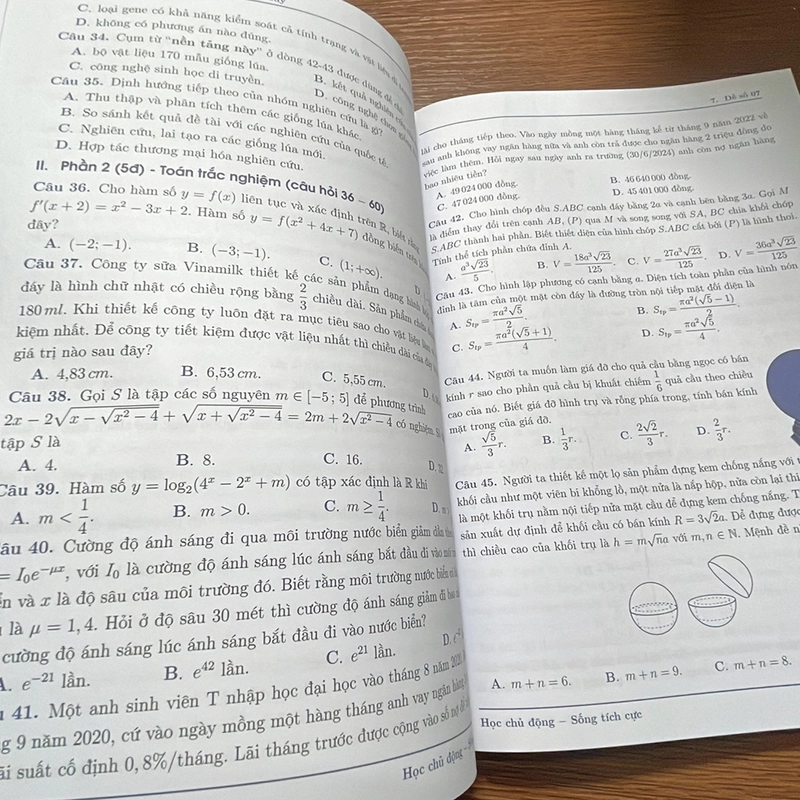 C. loại gene có khả năng kiểm soát cả tính trạng và vật liệu di
D. không có phương án nào đúng.
Câu 34. Cụm từ "nền tảng này" ở dòng 42-43 được dùng để chỉ
A. bộ vật liệu 170 mẫu giống lúa.
B. kết quả nghiên cứu
C. công nghệ sinh học di truyền.
D. công nghệ chọn giống
Câu 35. Định hướng tiếp theo của nhóm nghiên cứu là gì?
A. Thu thập và phân tích thêm các giống lúa khác.
B. So sánh kết quả đề tài với các nghiên cứu của quốc tế.
C. Nghiên cứu, lai tạo ra các giống lúa mới.
D. Hợp tác thương mại hóa nghiên cứu.
II. Phần 2 (5đ) - Toán trắc nghiệm (câu hỏi 36 - 60)
Câu 36. Cho hàm số y = f(x) liên tục và xác định trên R, biết rằng
f'(x + 2) = x² − 3x + 2. Hàm số y = f(x² + 4x + 7) đồng biến trên
đây?
A. (−2; −1). B. (−3; −1). C. (1; +∞). D.
Câu 37. Công ty sữa Vinamilk thiết kế các sản phẩm dạng hình
đáy là hình chữ nhật có chiều rộng bằng 2/3 chiều dài. Sản phẩm chứa
180 ml. Khi thiết kế công ty luôn đặt ra mục tiêu sao cho vật liệu
kiệm nhất. Để công ty tiết kiệm được vật liệu nhất thì chiều dài của đáy
giá trị nào sau đây?
A. 4,83 cm. B. 6,53 cm. C. 5,55 cm. D.
Câu 38. Gọi S là tập các số nguyên m ∈ [−5; 5] để phương trình
2x − 2√(x − √(x² − 4)) + √(x + √(x² − 4)) = 2m + 2√(x² − 4) có nghiệm.
tập S là
A. 4. B. 8. C. 16. D. 32
Câu 39. Hàm số y = log₂(4ˣ − 2ˣ + m) có tập xác định là R khi
A. m < 1/4. B. m > 0. C. m ≥ 1/4. D.
Câu 40. Cường độ ánh sáng đi qua môi trường nước biển giảm dần
= I₀e^(−μx), với I₀ là cường độ ánh sáng lúc ánh sáng bắt đầu đi vào
và x là độ sâu của môi trường đó. Biết rằng môi trường nước biển
là μ = 1,4. Hỏi ở độ sâu 30 mét thì cường độ ánh sáng giảm đi
cường độ ánh sáng lúc ánh sáng bắt đầu đi vào nước biển?
A. e⁻²¹ lần. B. e⁴² lần. C. e²¹ lần. D.
41. Một anh sinh viên T nhập học đại học vào tháng 8 năm
9 năm 2020, cứ vào ngày mồng một hàng tháng anh vay ngân hàng
suất cố định 0,8%/tháng. Lãi tháng trước được cộng vào số nợ
Học chủ động -
7. Đề số 07
lãi cho tháng tiếp theo. Vào ngày mồng một hàng tháng kể từ tháng 9 năm 2022 về
sau anh không vay ngân hàng nữa và anh còn trả được cho ngân hàng 2 triệu đồng do
việc làm thêm. Hỏi ngay sau ngày anh ra trường (30/6/2024) anh còn nợ ngân hàng
bao nhiêu tiền?
A. 49 024 000 đồng. B. 46 640 000 đồng.
C. 47 024 000 đồng. D. 45 401 000 đồng.
Câu 42. Cho hình chóp đều S.ABC cạnh đáy bằng 2a và cạnh bên bằng 3a. Gọi M
là điểm thay đổi trên cạnh AB, (P) qua M và song song với SA, BC chia khối chóp
S.ABC thành hai phần. Biết thiết diện của hình chóp S.ABC cắt bởi (P) là hình thoi.
Tính thể tích phần chứa đỉnh A.
A. a³√23/5. B. V = 18a³√23/125. C. V = 27a³√23/125. D. V = 36a³√23/125
Câu 43. Cho hình lập phương có cạnh bằng a. Diện tích toàn phần của hình nón
đỉnh là tâm của một mặt còn đáy là đường tròn nội tiếp mặt đối diện là
A. Sₜₚ = πa²√5/2. B. Sₜₚ = πa²(√5 − 1)/2
C. Sₜₚ = πa²(√5 + 1)/4. D. Sₜₚ = πa²√5/4.
Câu 44. Người ta muốn làm giá đỡ cho quả cầu bằng ngọc có bán
kính r sao cho phần quả cầu bị khuất chiếm 1/6 quả cầu theo chiều
cao của nó. Biết giá đỡ hình trụ và rỗng phía trong, tính bán kính
mặt trong của giá đỡ.
A. √5/3 r. B. 1/3 r. C. 2√2/3 r. D. 2/3 r.
Câu 45. Người ta thiết kế một lọ sản phẩm đựng kem chống nắng với
khối cầu như một viên bi khổng lồ, một nửa là nắp hộp, nửa còn lại thì
là một khối trụ nằm nội tiếp nửa mặt cầu để đựng kem chống nắng.
sản xuất dự định để khối cầu có bán kính R = 3√2a. Để đựng được
thì chiều cao của khối trụ là h = m√na với m, n ∈ N. Mệnh đề
A. m + n = 6. B. m + n = 9. C. m + n = 8.
Học chủ động - Sống tích cực